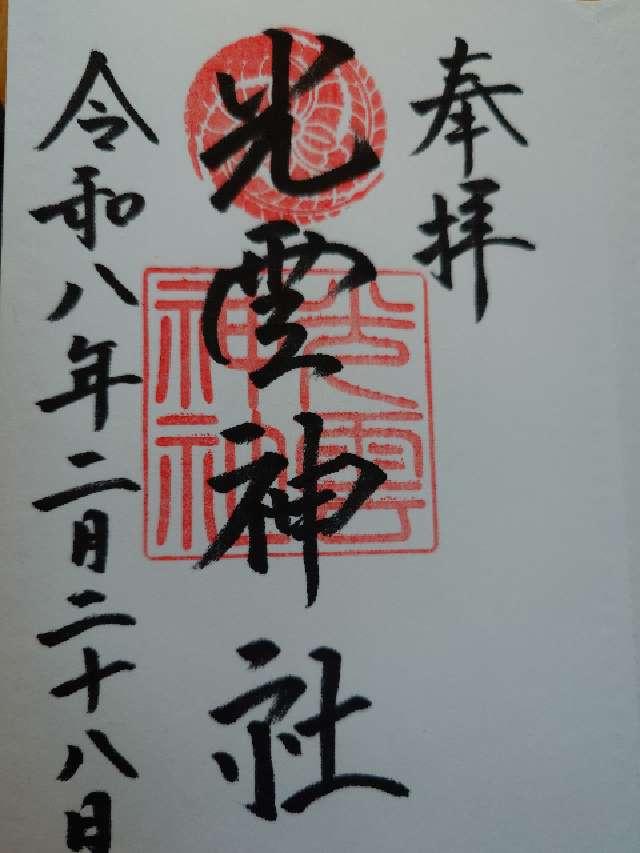 奉拝
光雲神社
光雲神社
令和八年二月二十八日